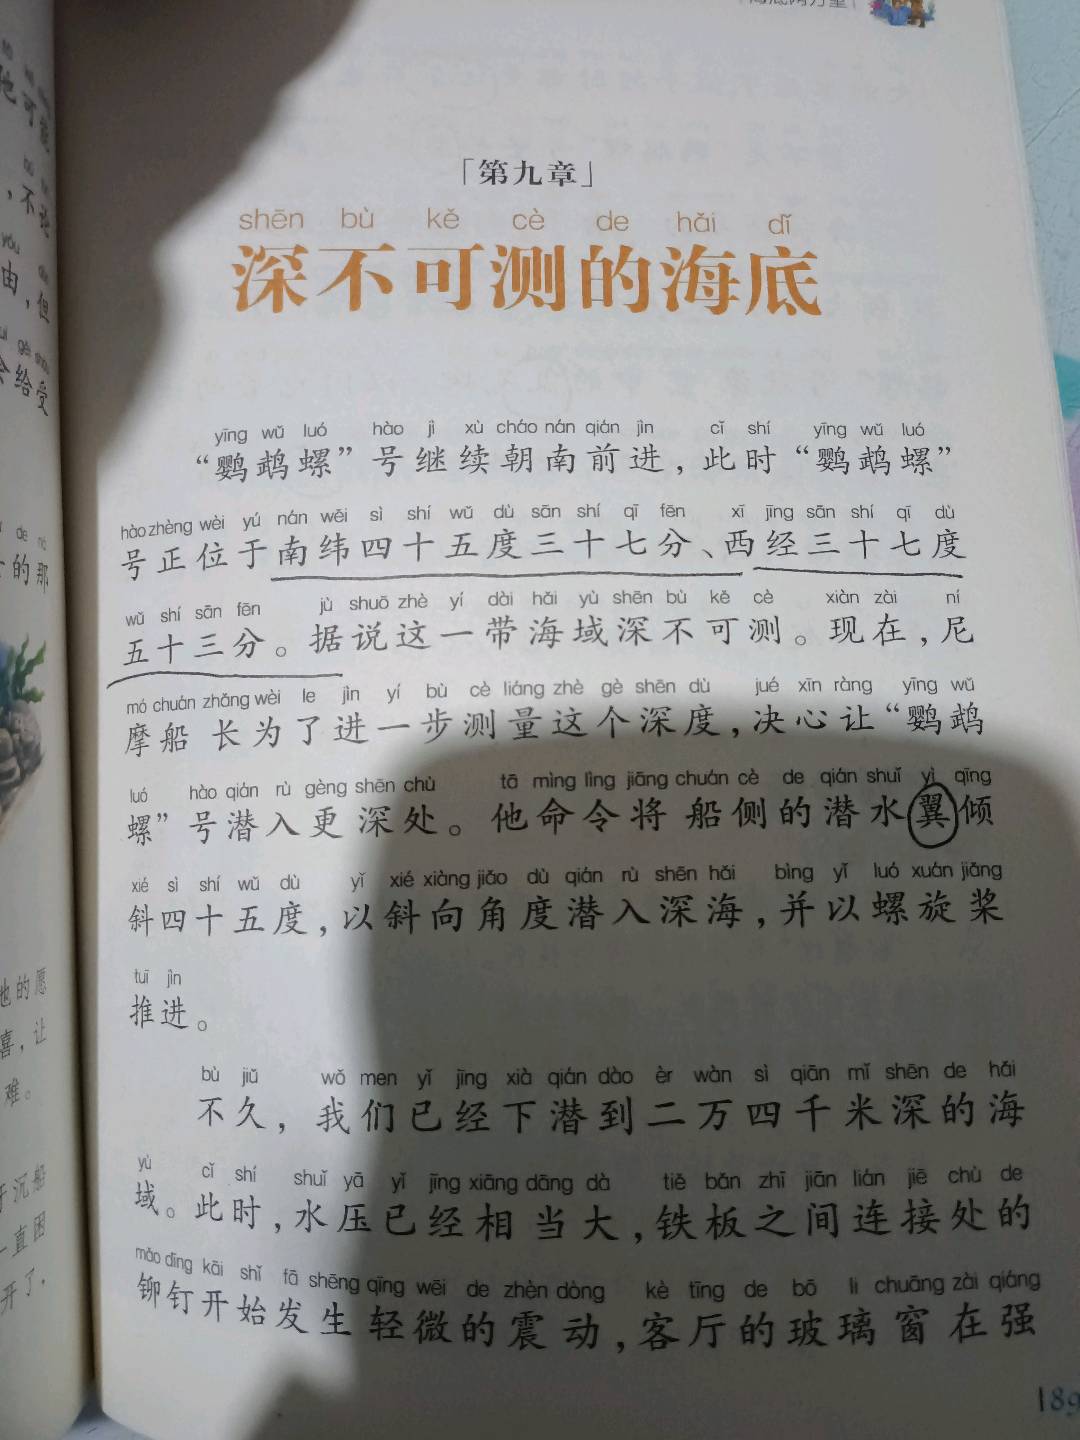 海底两万里
「第九章」
shēn bù kě cè de hǎi dǐ
深不可测的海底
yīng wǔ luó hào jì xù cháo nán qián jìn cǐ shí yīng wǔ luó
“鹦鹉螺”号继续朝南前进，此时“鹦鹉螺”
hào zhèng wèi yú nán wěi sì shí wǔ dù sān shí qī fēn xī jīng sān shí qī dù
号正位于南纬四十五度三十七分、西经三十七度
wǔ shí sān fēn jù shuō zhè yí dài hǎi yù shēn bù kě cè xiàn zài ní
五十三分。据说这一带海域深不可测。现在，尼
mó chuán zhǎng wèi le jìn yí bù cè liáng zhè gè shēn dù jué xīn ràng yīng wǔ
摩船长为了进一步测量这个深度，决心让“鹦鹉
luó hào qián rù gèng shēn chù tā mìng lìng jiāng chuán cè de qián shuǐ yì qīng
螺”号潜入更深处。他命令将船侧的潜水翼倾
xié sì shí wǔ dù yǐ xié xiàng jiǎo dù qián rù shēn hǎi bìng yǐ luó xuán jiǎng
斜四十五度，以斜向角度潜入深海，并以螺旋桨
tuī jìn
推进。
bù jiǔ wǒ men yǐ jīng xià qián dào èr wàn sì qiān mǐ shēn de hǎi
不久，我们已经下潜到二万四千米深的海
yù cǐ shí shuǐ yā yǐ jīng xiāng dāng dà tiě bǎn zhī jiān lián jiē chù de
域。此时，水压已经相当大，铁板之间连接处的
mǎo dīng kāi shǐ fā shēng qīng wēi de zhèn dòng kè tīng de bō li chuāng zài qiáng
铆钉开始发生轻微的震动，客厅的玻璃窗在强
189